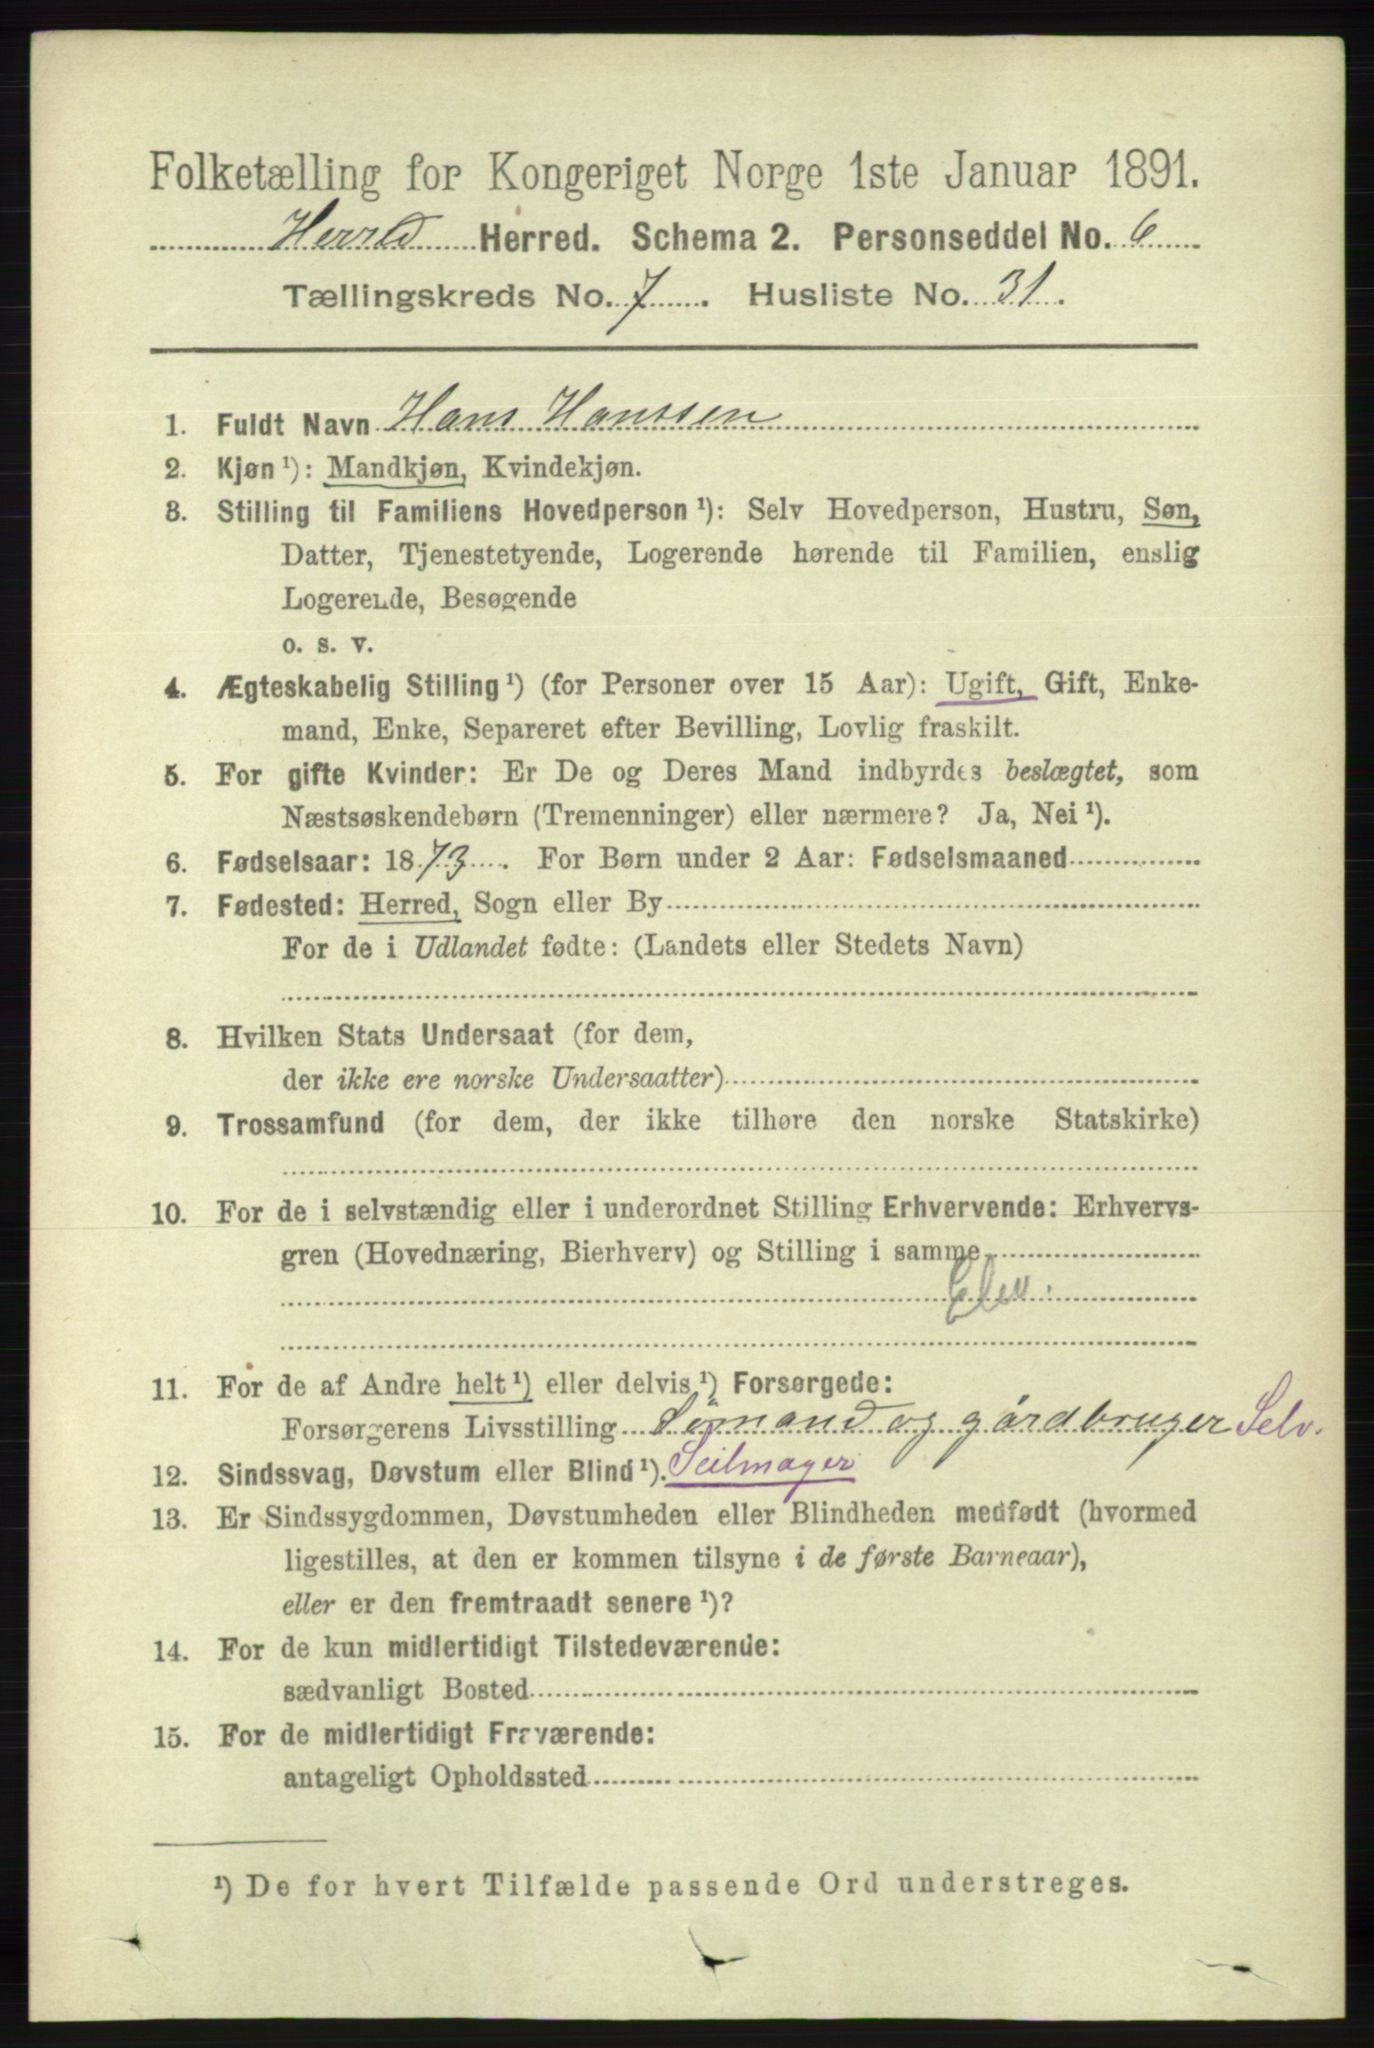 Folketælling for Kongeriget Norge 1ste Januar 1891.
Herred Herred. Schema 2. Personseddel No. 6
Tællingskreds No. 7. Husliste No. 31.
1. Fuldt Navn Hans Hanssen
2. Kjøn ¹): Mandkjøn, Kvindekjøn.
3. Stilling til Familiens Hovedperson ¹): Selv Hovedperson, Hustru, Søn,
Datter, Tjenestetyende, Logerende hørende til Familien, enslig
Logerende, Besøgende
o. s. v.
4. Ægteskabelig Stilling ¹) (for Personer over 15 Aar): Ugift, Gift, Enke-
mand, Enke, Separeret efter Bevilling, Lovlig fraskilt.
5. For gifte Kvinder: Er De og Deres Mand indbyrdes beslægtet, som
Næstsøskendebørn (Tremenninger) eller nærmere? Ja, Nei ¹).
6. Fødselsaar: 1873. For Børn under 2 Aar: Fødselsmaaned
7. Fødested: Herred, Sogn eller By
For de i Udlandet fødte: (Landets eller Stedets Navn)
8. Hvilken Stats Undersaat (for dem,
der ikke ere norske Undersaatter)
9. Trossamfund (for dem, der ikke tilhøre den norske Statskirke)
10. For de i selvstændig eller i underordnet Stilling Erhvervende: Erhvervs-
gren (Hovednæring, Bierhverv) og Stilling i samme
Elev.
11. For de af Andre helt ¹) eller delvis ¹) Forsørgede:
Forsørgerens Livsstilling Sømand og gårdbruger Selv.
12. Sindssvag, Døvstum eller Blind ¹). Seilmager
13. Er Sindssygdommen, Døvstumheden eller Blindheden medfødt (hvormed
ligestilles, at den er kommen tilsyne i de første Barneaar),
eller er den fremtraadt senere ¹)?
14. For de kun midlertidigt Tilstedeværende:
sædvanligt Bosted
15. For de midlertidigt Fraværende:
antageligt Opholdssted
¹) De for hvert Tilfælde passende Ord understreges.